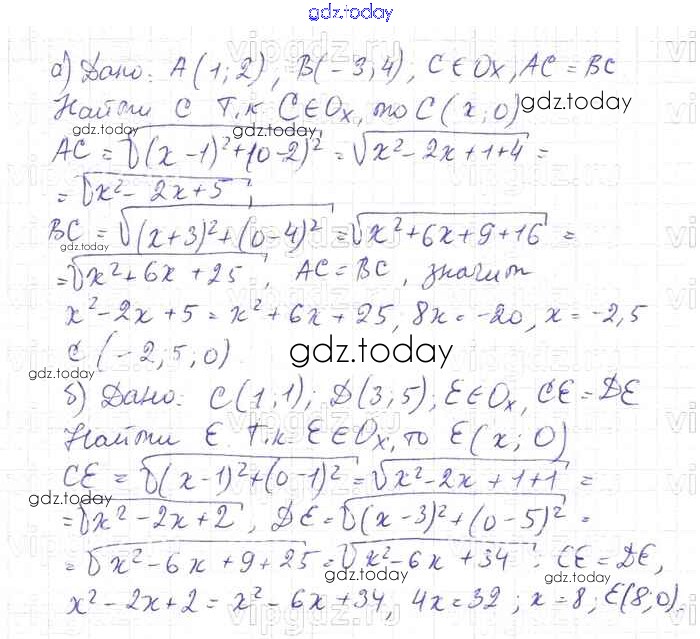 gdz.today
а) Дано: A(1;2), B(-3;4), C∈Ox, AC = BC
Найти C Т.к. C∈Ox, то C(x;0) gdz.today
gdz.today
AC = √(x-1)²+(0-2)² = √x²-2x+1+4 =
gdz.today
= √x²-2x+5,
BC = √(x+3)²+(0-4)² = √x²+6x+9+16 =
gdz.today gdz.today
= √x²+6x+25, AC = BC, значит
x²-2x+5 = x²+6x+25, 8x = -20, x = -2,5
C(-2,5;0)
gdz.today
gdz.today
б) Дано: C(1;1); D(3;5); E∈Ox, CE = DE
Найти E. Т.к. E∈Ox, то E(x;0)
CE = √(x-1)²+(0-1)² = √x²-2x+1+1 =
gdz.today gdz.today
= √x²-2x+2, DE = √(x-3)²+(0-5)² =
gdz.today
= √x²-6x+9+25 = √x²-6x+34; CE = DE,
gdz.today gdz.today
x²-2x+2 = x²-6x+34, 4x = 32; x = 8; E(8;0).